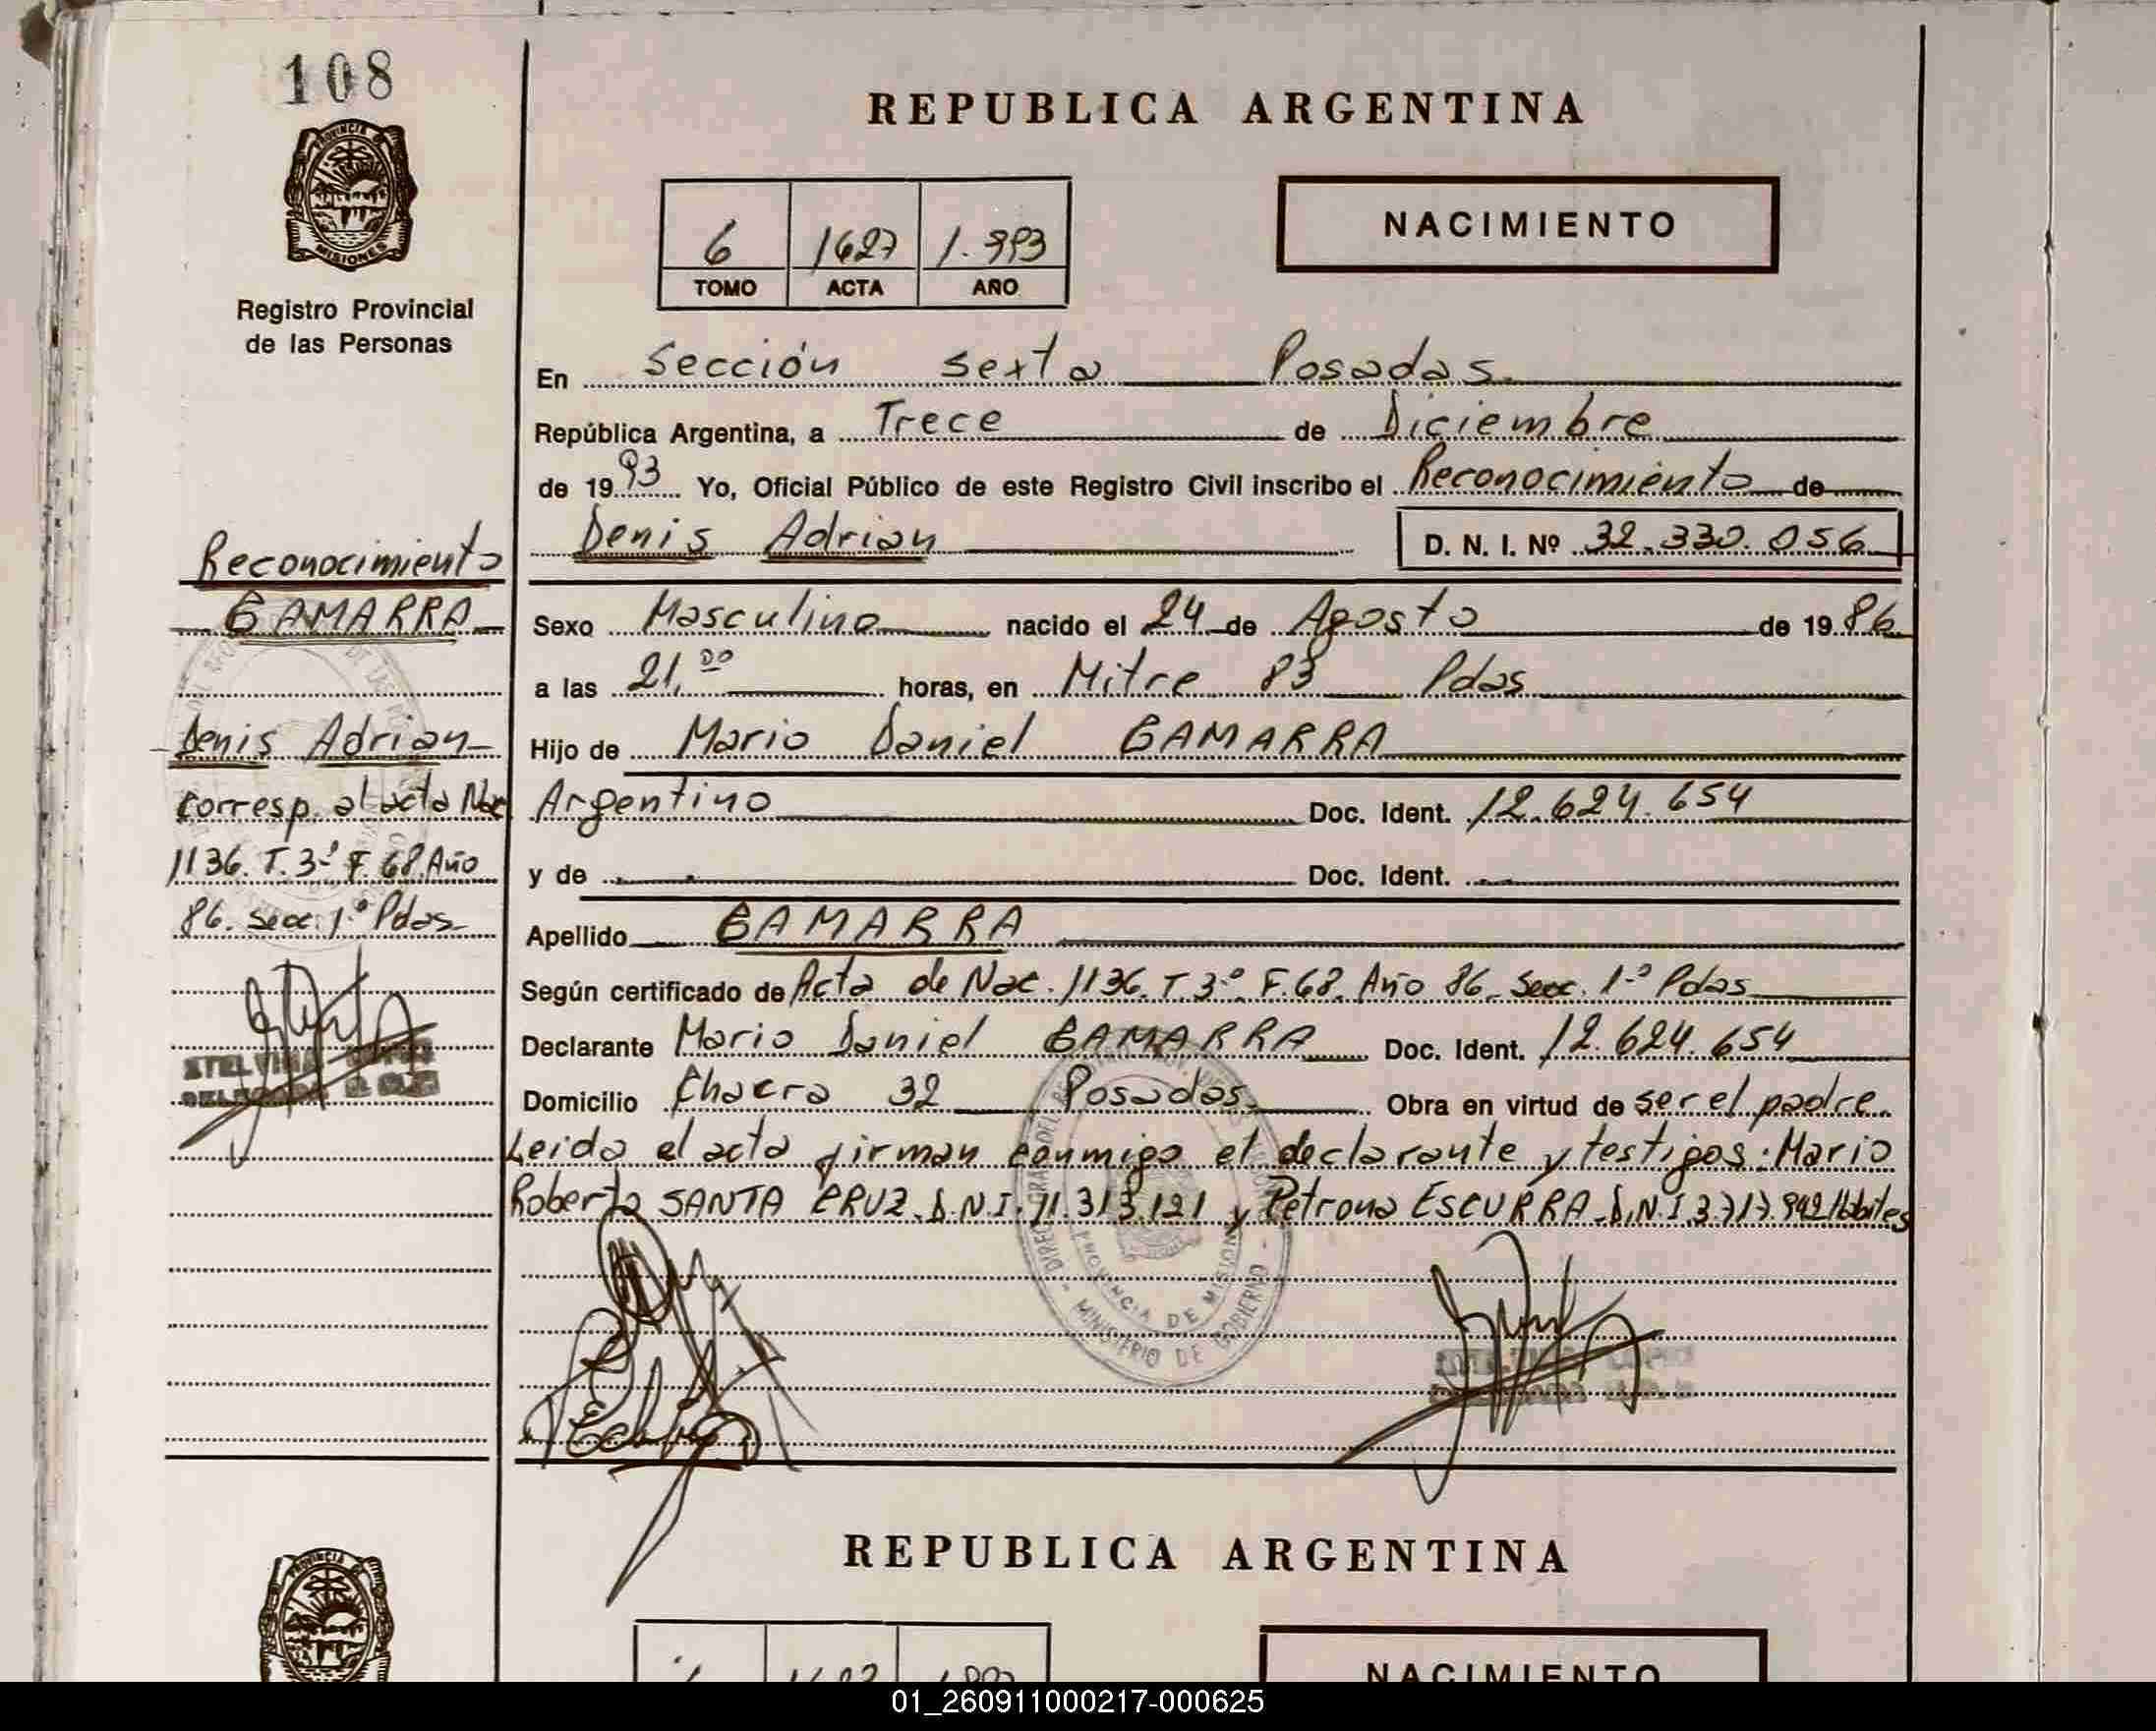 108
PROVINCIA
MISIONES
Registro Provincial
de las Personas
Reconocimiento
GAMARRA
Denis Adrian
corresp. al acta Nac
1136. T. 3º F. 68. Año
86. Secc. 1º Pdas
REPUBLICA ARGENTINA
6 1627 1.993
TOMO ACTA AÑO
NACIMIENTO
En Sección Sexta Posadas
República Argentina, a Trece de Diciembre
de 1993 Yo, Oficial Público de este Registro Civil inscribo el Reconocimiento de
Denis Adrian D. N. I. Nº 32.330.056
Sexo Masculino nacido el 24 de Agosto de 1986
a las 21,00 horas, en Mitre 83 Pdas
Hijo de Mario Daniel GAMARRA
Argentino Doc. Ident. 12.624.654
y de Doc. Ident.
Apellido GAMARRA
Según certificado de Acta de Nac. 1136. T. 3º F. 68. Año 86. Secc. 1º Pdas
Declarante Mario Daniel GAMARRA Doc. Ident. 12.624.654
Domicilio Chacra 32 Posadas Obra en virtud de ser el padre.
Leida el acta firman conmigo el declarante y testigos: Mario
Roberto SANTA CRUZ. D.N.I. 11.313.121 y Petrona ESCURRA. D.N.I 3.717.942 Hábiles
PROVINCIA DE MISIONES
MINISTERIO DE GOBIERNO
REPUBLICA ARGENTINA
PROVINCIA
NACIMIENTO
01_260911000217-000625